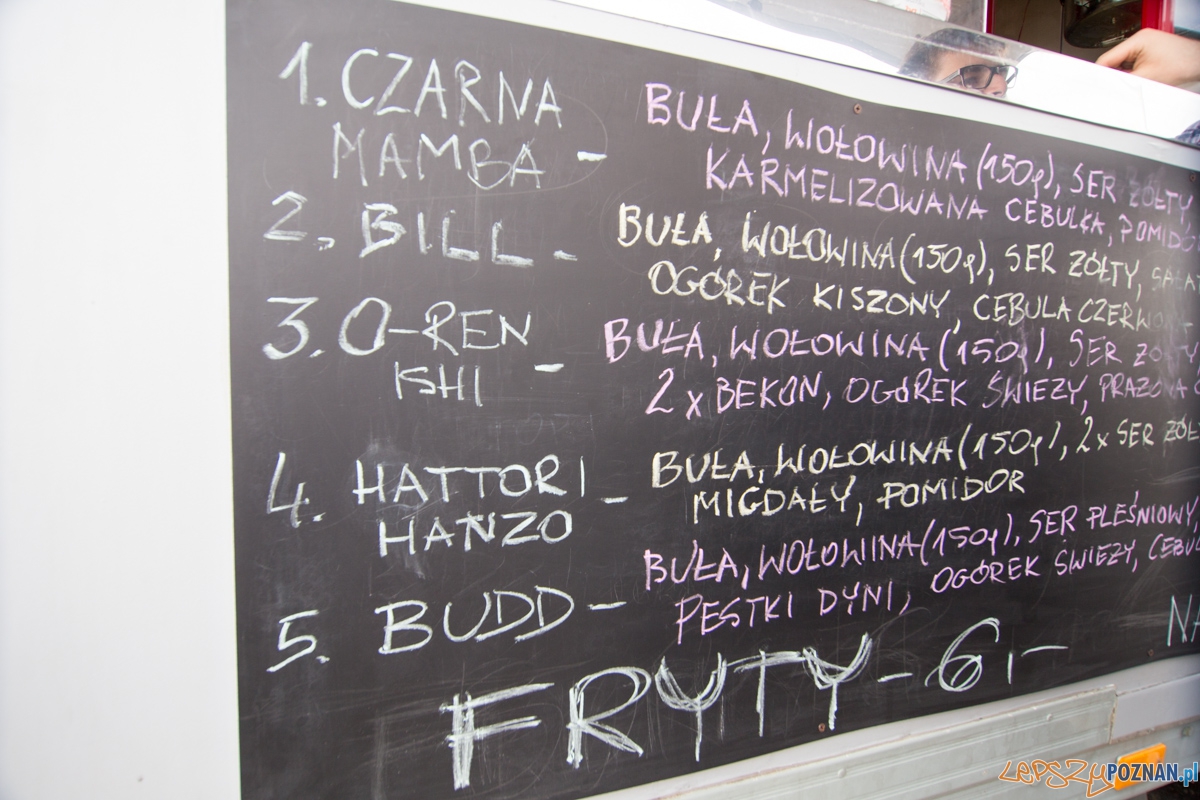 1. CZARNA
MAMBA -
BUŁA, WOŁOWINA (150g), SER ŻÓŁTY,
KARMELIZOWANA CEBULKA, POMIDO
2. BILL -
BUŁA, WOŁOWINA (150g), SER ŻÓŁTY, SAŁAT
OGÓREK KISZONY, CEBULA CZERWON
3. O-REN
ISHI -
BUŁA, WOŁOWINA (150g), SER ŻÓŁTY,
2 x BEKON, OGÓREK ŚWIEŻY, PRAŻONA
4. HATTORI
HANZO -
BUŁA, WOŁOWINA (150g), 2x SER ŻÓŁT
MIGDAŁY, POMIDOR
5. BUDD -
BUŁA, WOŁOWINA (150g), SER PLEŚNIOWY
PESTKI DYNI, OGÓREK ŚWIEŻY, CEBUL
FRYTY - 6,-
NA
LEPSZYPOZNAN.pl